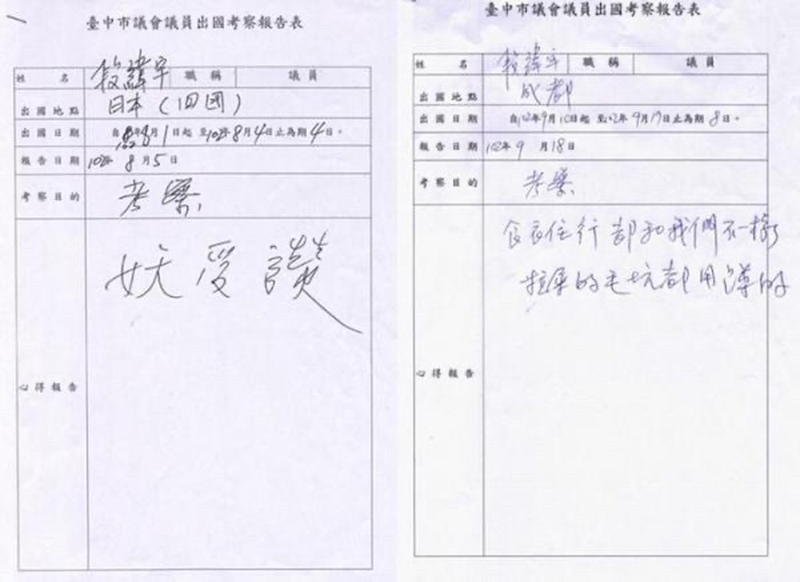 臺中市議會議員出國考察報告表
姓名 段緯宇 職稱 議員
出國地點 日本(四國)
出國日期 自 年8月1日起至102年8月4日止為期4日。
報告日期 102年8月5日
考察目的 考察
心得報告 妖受讚
臺中市議會議員出國考察報告表
姓名 段緯宇 職稱 議員
出國地點 成都
出國日期 自102年9月10日起至102年9月17日止為期8日。
報告日期 102年9月18日
考察目的 考察
食衣住行都和我們不一樣
拉屎的毛坑都用蹲的
心得報告